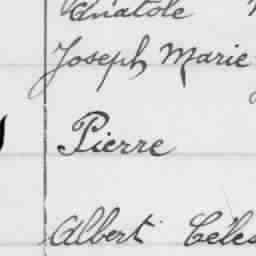 Anatole
Joseph Marie
Pierre
Albert